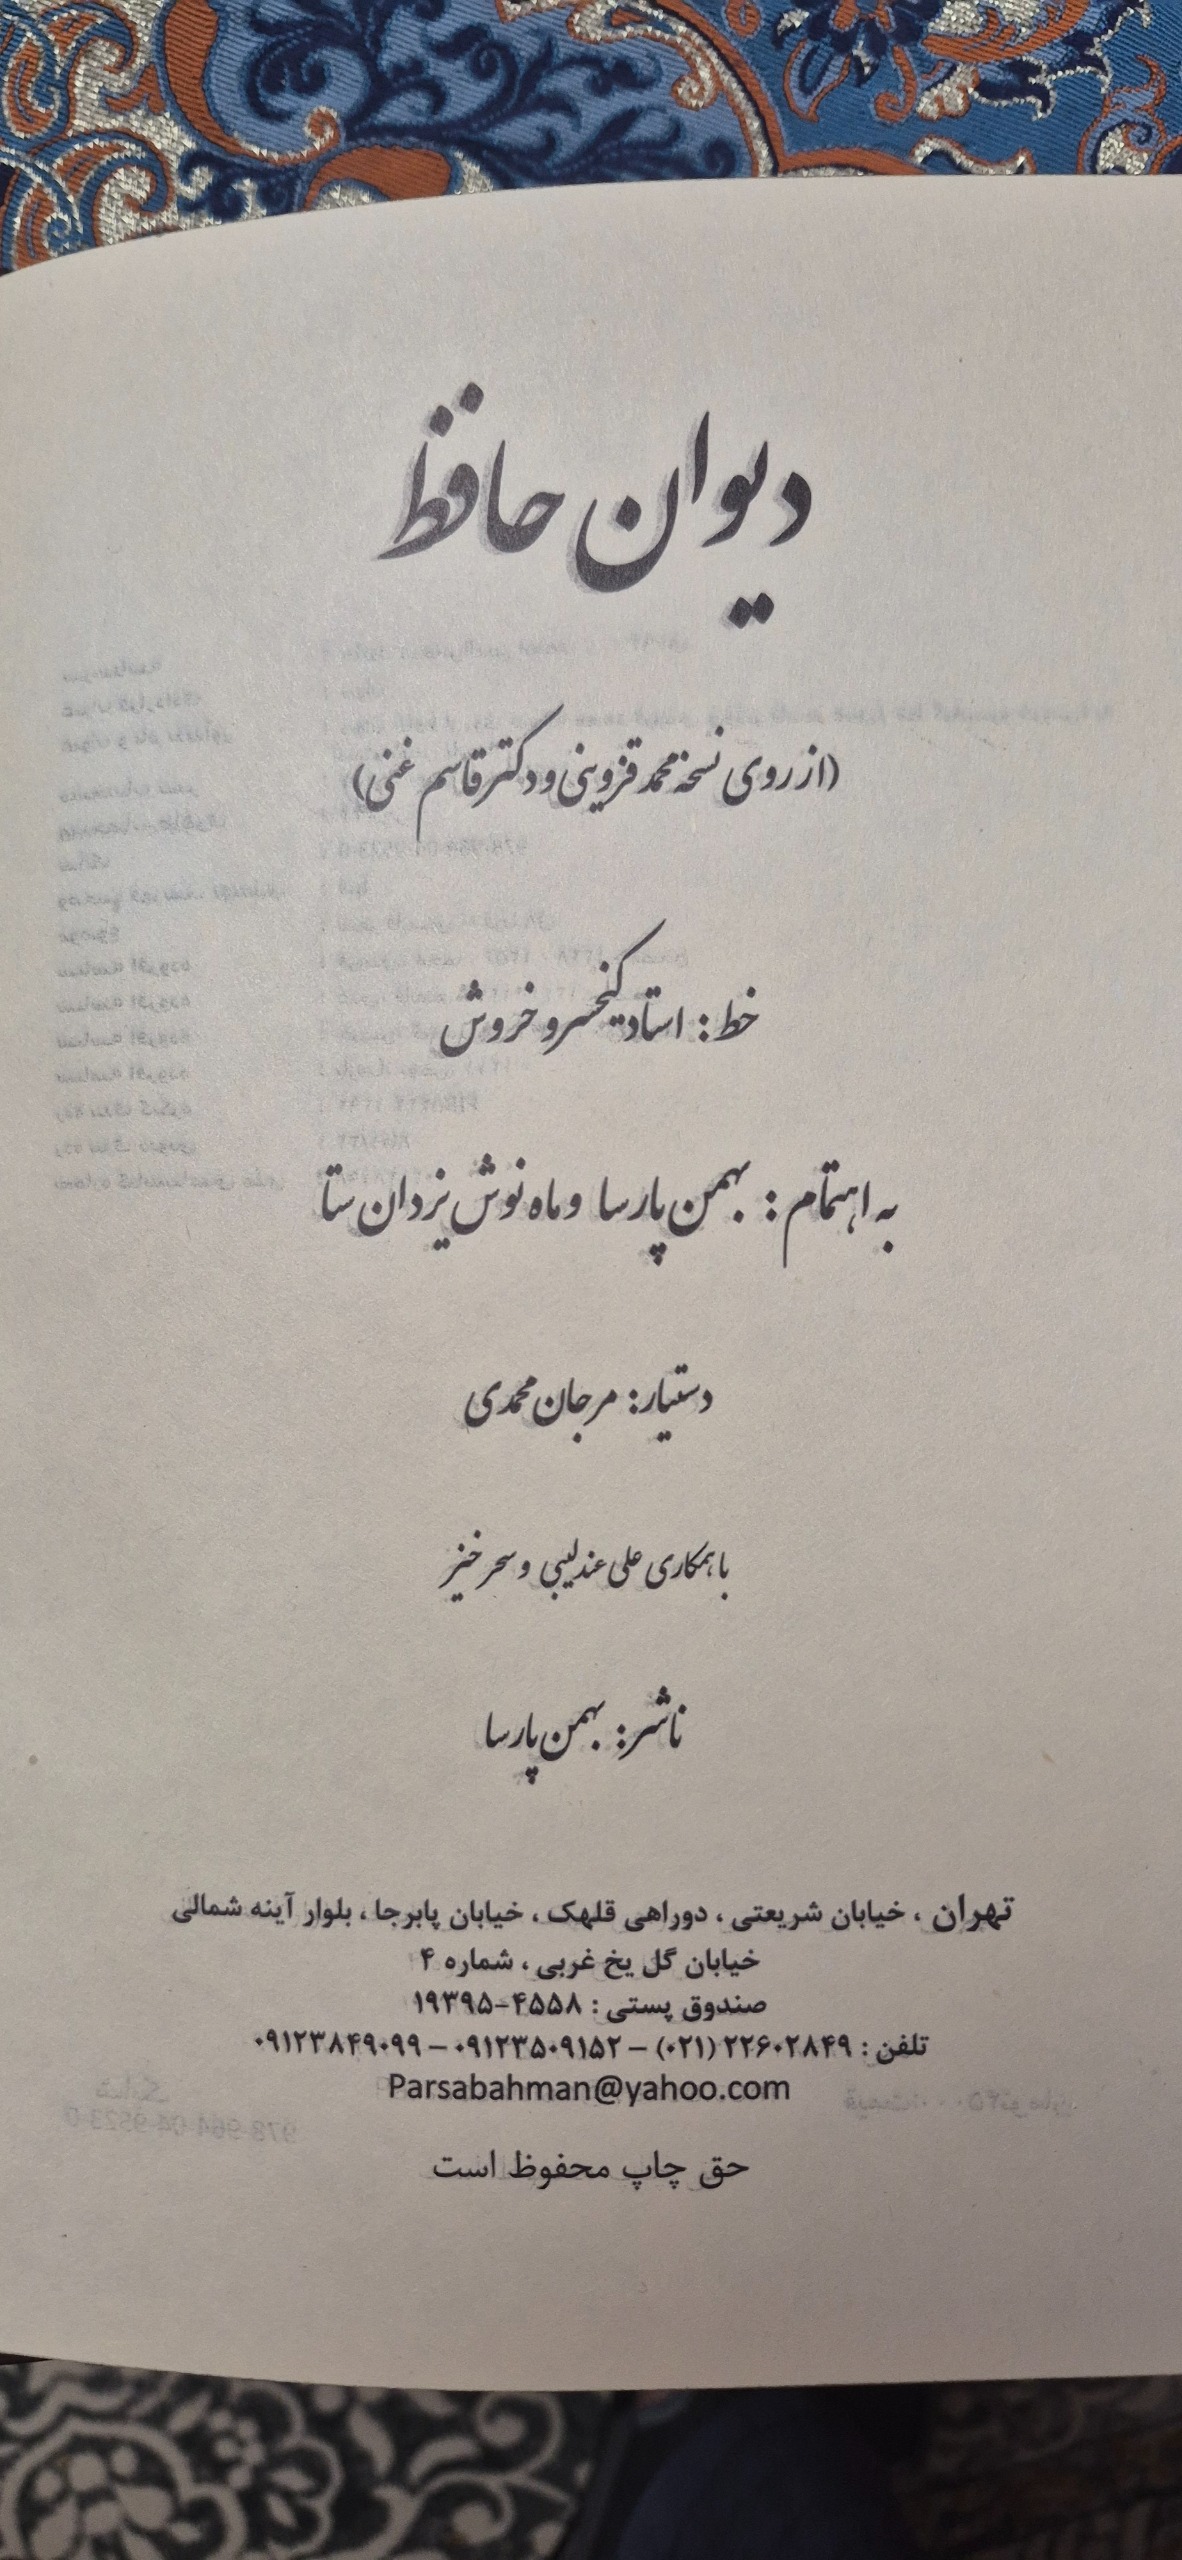 دیوان حافظ
(از روی نسخه محمد قزوینی و دکتر قاسم غنی)
خط: استاد کیخسرو خروش
به اهتمام: بهمن پارسا و ماه نوش یزدان ستا
دستیار: مرجان محمدی
با همکاری علی عندلیبی و سحر خیز
ناشر: بهمن پارسا
تهران ، خیابان شریعتی ، دوراهی قلهک ، خیابان پابرجا ، بلوار آینه شمالی
خیابان گل یخ غربی ، شماره ۴
صندوق پستی : ۴۵۵۸-۱۹۳۹۵
تلفن : ۲۲۶۰۲۸۴۹ (۰۲۱) – ۰۹۱۲۳۵۰۹۱۵۲ – ۰۹۱۲۳۸۴۹۰۹۹
Parsabahman@yahoo.com
حق چاپ محفوظ است